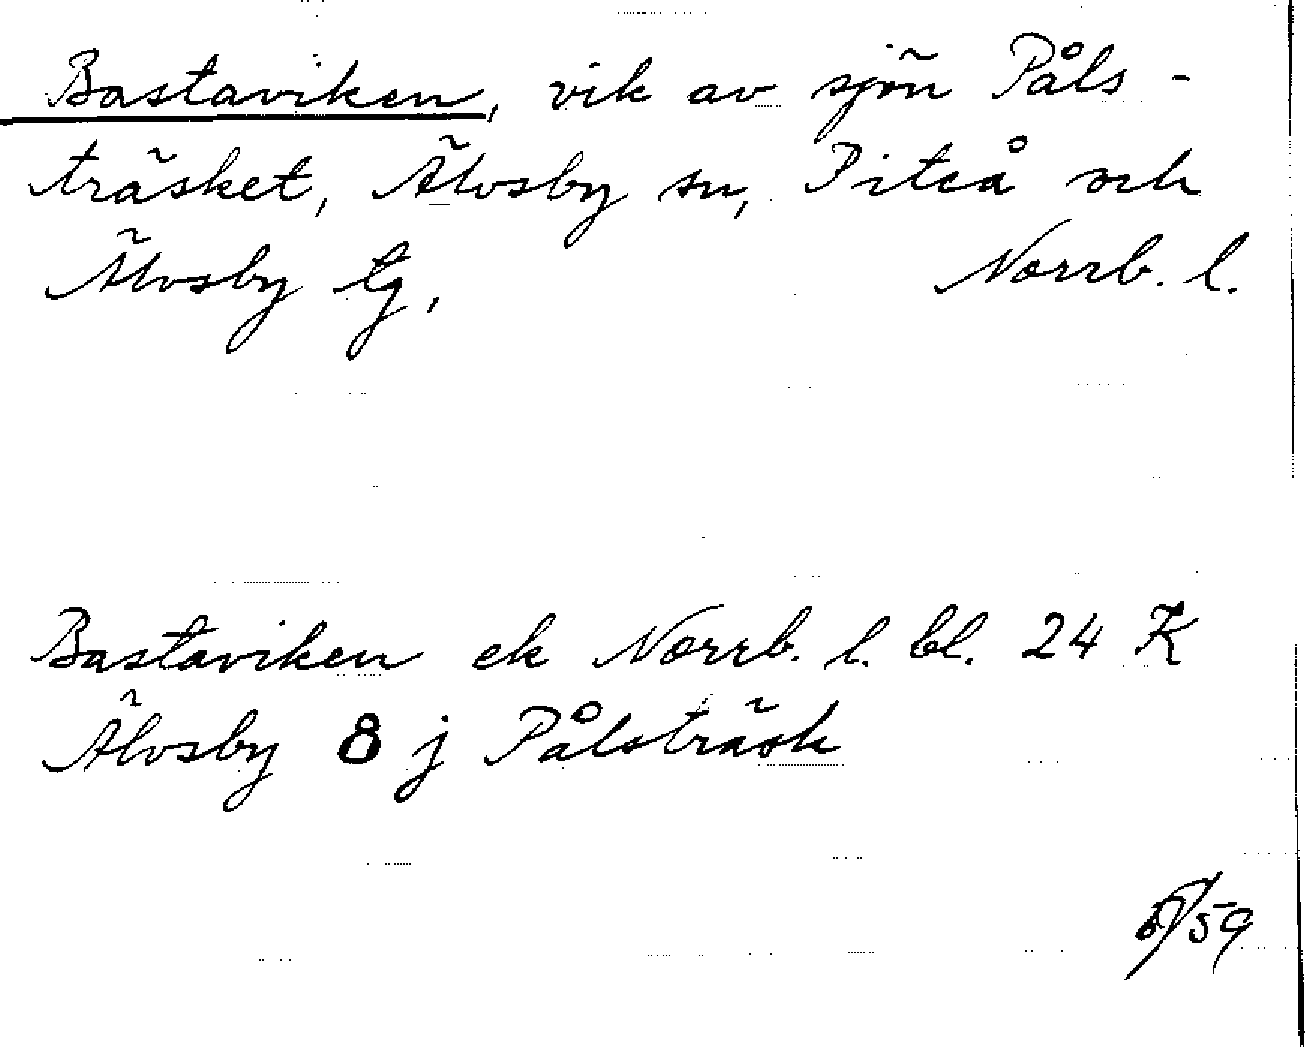 Bastaviken, vik av sjön Påls-
träsket, Älvsby sn, Piteå och
Älvsby tg, Norrb. l.
Bastaviken ek Norrb. l. bl. 24 K
Älvsby 8 j Pålsträsk
/59